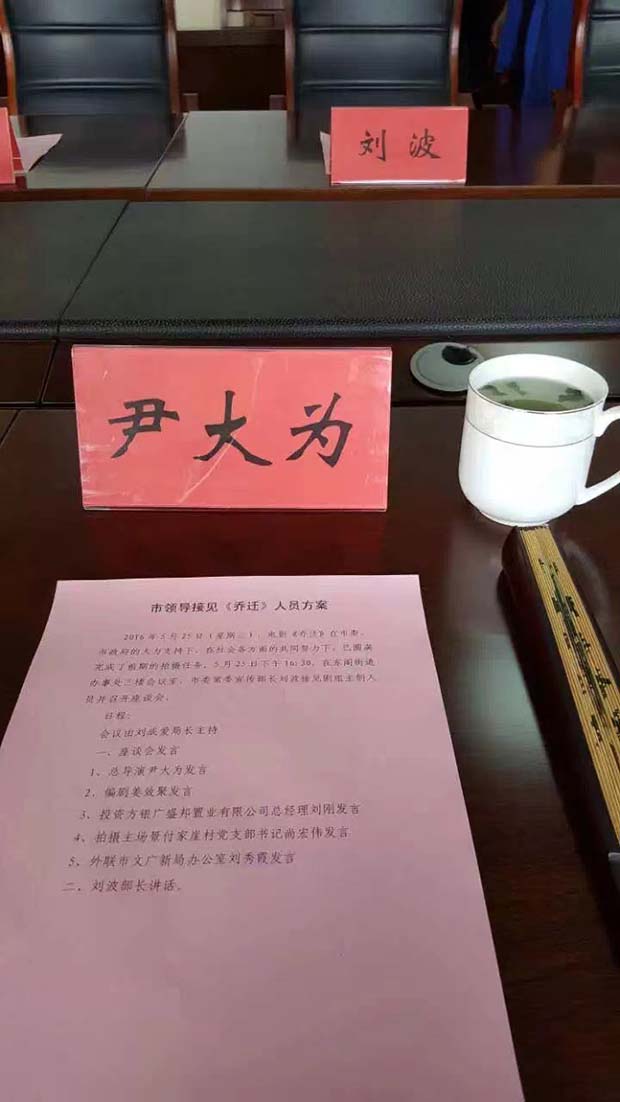 刘波
尹大为
市领导接见《乔迁》人员方案
2016年5月25日（星期三），电影《乔迁》在市委、
市政府的大力支持下，在社会各方面的共同努力下，已圆满
完成了前期的拍摄任务。5月25日下午16:30，在东阁街道
办事处三楼会议室，市委常委宣传部长刘波接见剧组主创人
员并召开座谈会。
日程：
会议由刘派爱局长主持
一、座谈会发言
1、总导演尹大为发言
2、编剧姜效聚发言
3、投资方银广盛邦置业有限公司总经理刘刚发言
4、拍摄主场景付家崖村党支部书记尚宏伟发言
5、外联市文广新局办公室刘秀霞发言
二、刘波部长讲话。